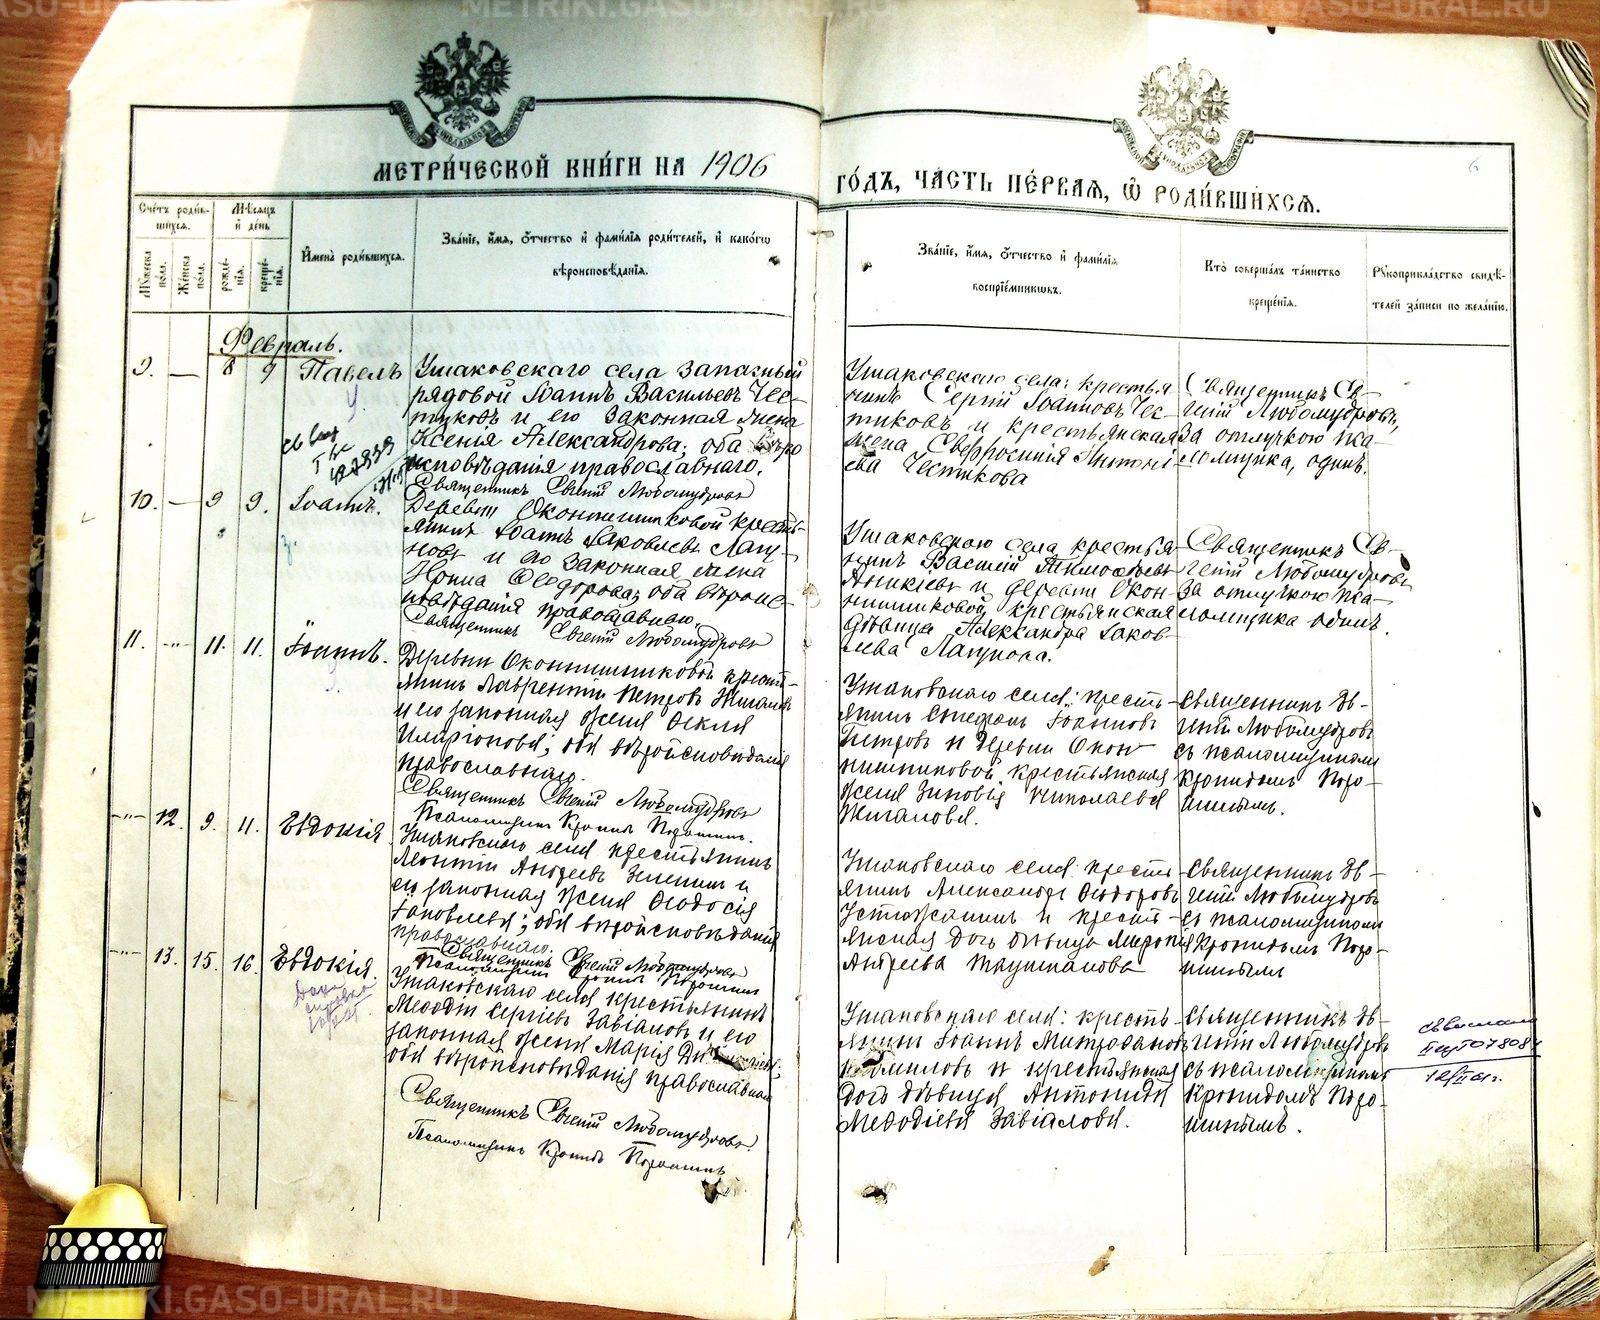 МЕТРИ́ЧЕСКОЙ КНИ́ГИ НА 1906
ГО́ДЪ, ЧА́СТЬ ПЕ́РВАѦ, Ѽ РОДИ́ВШИХСѦ.
Сче́тъ роди́вшихся.
Мѣ́сяцъ и҆ день
И҆мена̀ роди́вшихся.
Зва́нїе, и҆́мя, ѻ҆́тчество и҆ фами́лїя роди́телей, и҆ како́гѡ
вѣроисповѣ́данїя.
Зва́нїе, и҆́мя, ѻ҆́тчество и҆ фами́лїя
воспрїе́мникѡвъ.
Кто̀ соверша́лъ та́инство
креще́нїя.
Рꙋкоприкла́дство свидѣ́-
телей за́писи по жела́нїю.
Мꙋ́жеска по́ла.
Же́нска по́ла.
рожде́нїя.
креще́нїя.
6
Февраль.
9. — 8 9 Павелъ
Ушаковскаго села запасный
рядовой Іоаннъ Васильевъ Чес-
тиковъ и его законная жена
Ксенія Александрова; оба вѣро
исповѣданія православнаго.
Священникъ Евгеній Любомудровъ
Ушаковскаго села: крестья
нинъ Сергій Іоанновъ Чес-
тиковъ и крестьянская
жена Евфросинія
Честикова
Священникъ Ев-
геній Любомудровъ,
за отлучкою пса-
ломщика, одинъ.
10. — 9 9. Іоаннъ.
Деревни кресть-
янинъ Іоаннъ Іаковлевъ Лагу-
новъ и его законная жена
Нонна Ѳеодорова; оба вѣроис-
повѣданія православнаго.
Священникъ Евгеній Любомудровъ
Ушаковскаго села крестья
нинъ Василій Тимоѳеевъ
Аникіевъ и деревни Окон-
нишниковой крестьянская
дѣвица Александра Іаков-
лева Лагунова.
Священникъ Ев-
геній Любомудровъ
за отлучкою пса-
ломщика одинъ.
11. -"- 11. 11. Іоаннъ.
Деревни Оконнишниковой крест-
янинъ Лаврентій Петровъ Жигаловъ
и его законная жена
оба вѣроисповѣданія
православнаго.
Священникъ Евгеній Любомудровъ
Псаломщикъ Кронидъ Порошинъ.
Ушаковскаго села: кресть-
янинъ Стефанъ Іоанновъ
Петровъ и деревни Окон
нишниковой крестьянская
жена Зиновія Николаева
Жигалова.
Священникъ Ев-
геній Любомудровъ
съ псаломщикомъ
Кронидомъ Поро-
шинымъ.
-"- 12. 9. 11. Евдокія
Ушаковскаго села крестьянинъ
Леонтій Андреевъ и
его законная жена Ѳеодосія
Іаковлева; оба вѣроисповѣданія
православнаго.
Священникъ Евгеній Любомудровъ
Псаломщикъ Кронидъ Порошинъ
Ушаковскаго села: кресть-
янинъ Александръ Ѳеодоровъ
Устюжанинъ и кресть-
янская дочь дѣвица
Андреева
Священникъ Ев-
геній Любомудровъ
съ псаломщикомъ
Кронидомъ Поро-
шинымъ
-"- 13. 15. 16. Евдокія.
Ушаковскаго села крестьянинъ
Меѳодій Сергіевъ Завіаловъ и его
законная жена Марія
оба вѣроисповѣданія православнаго
Священникъ Евгеній Любомудровъ
Псаломщикъ Кронидъ Порошинъ
Ушаковскаго села: кресть-
янинъ Іоаннъ Митрофановъ
и крестьянская
дочь дѣвица Антонида
Меѳодіева Завіалова.
Священникъ Ев-
геній Любомудровъ
съ псаломщикомъ
Кронидомъ Поро-
шинымъ.
METRIKI.GASO-URAL.RU